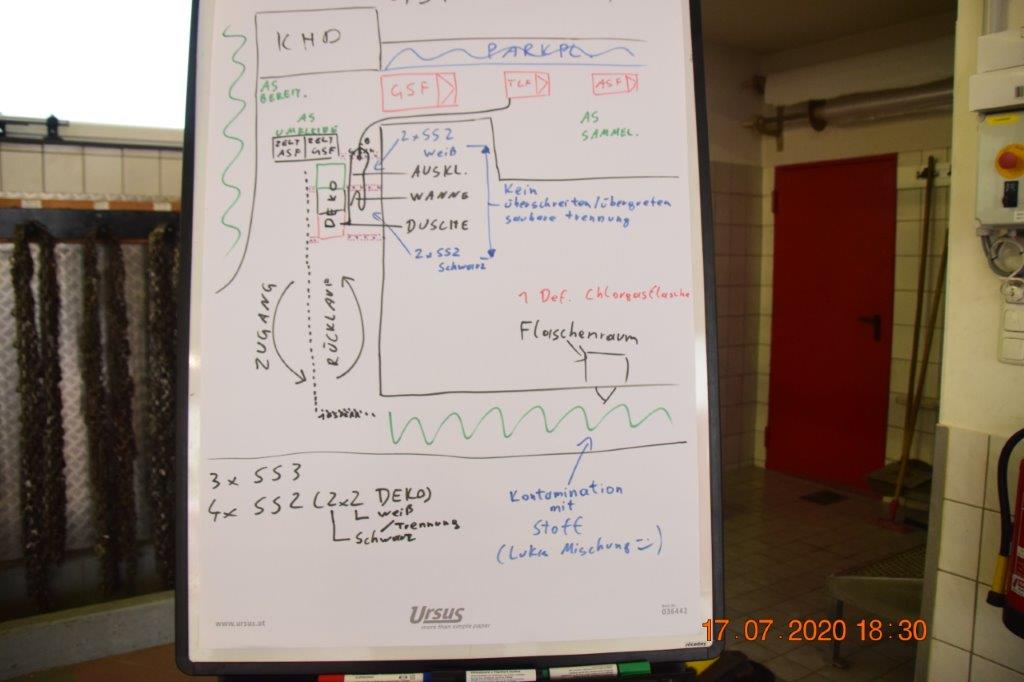 KHD
PARKPL.
AS
BEREIT.
GSF
TLF
ASF
AS
UMKLEIDE
AS
SAMMEL.
ZELT
ASF
ZELT
GSF
2x SS2
Weiß
AUSKL.
WANNE
DUSCHE
DEKO
2x SS2
Schwarz
Kein
überschreiten/übergreten
saubare trennung
ZUGANG
RÜCKLAUF
1 Def. Chlorgasflasche
Flaschenraum
3x SS3
4x SS2 (2x2 DEKO)
Weiß
/Trennung
Schwarz
Kontamination
mit
Stoff
(Luka Mischung =)
www.ursus.at
Ursus
more than simple paper
036442
17.07.2020 18:30